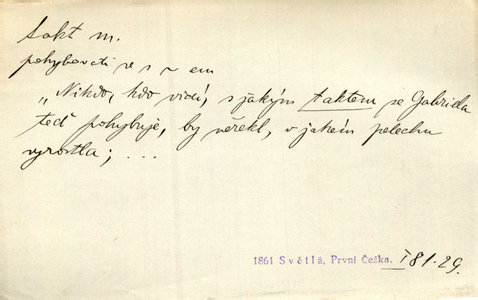 takt m.
pohybovati se s ~ em
„Nikdo, kdo vidí, s jakým taktem se Gabriela
teď pohybuje, by neřekl, v jakém pelechu
vyrostla; ...
1861 Světlá, První Češka. I 81.29.